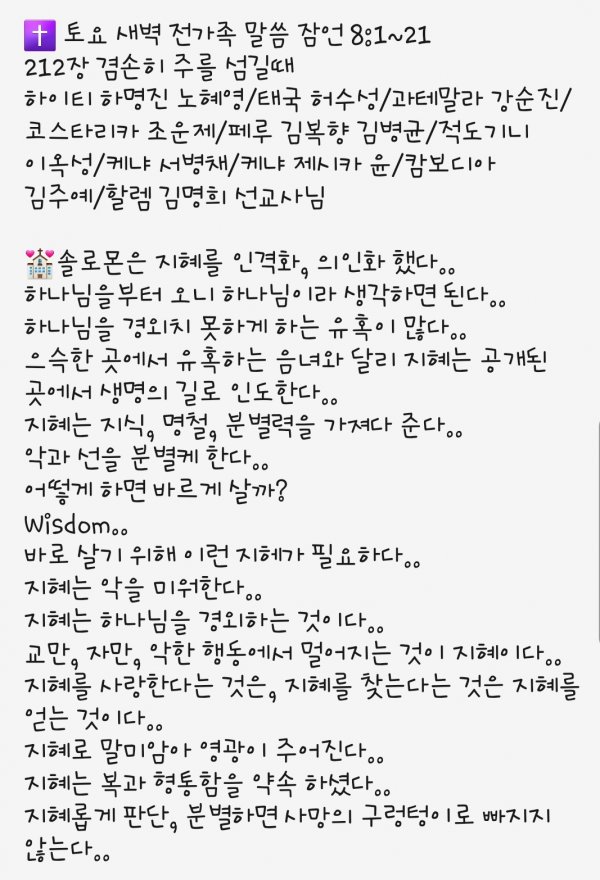 ✝️ 토요 새벽 전가족 말씀 잠언 8:1~21
212장 겸손히 주를 섬길때
하이티 하명진 노혜영/태국 허수성/과테말라 강순진/
코스타리카 조운제/페루 김복향 김병균/적도기니
이옥성/케냐 서병채/케냐 제시카 윤/캄보디아
김주예/할렘 김명희 선교사님
💒솔로몬은 지혜를 인격화, 의인화 했다..
하나님을부터 오니 하나님이라 생각하면 된다..
하나님을 경외치 못하게 하는 유혹이 많다..
으슥한 곳에서 유혹하는 음녀와 달리 지혜는 공개된
곳에서 생명의 길로 인도한다..
지혜는 지식, 명철, 분별력을 가져다 준다..
악과 선을 분별케 한다..
어떻게 하면 바르게 살까?
Wisdom..
바로 살기 위해 이런 지혜가 필요하다..
지혜는 악을 미워한다..
지혜는 하나님을 경외하는 것이다..
교만, 자만, 악한 행동에서 멀어지는 것이 지혜이다..
지혜를 사랑한다는 것은, 지혜를 찾는다는 것은 지혜를
얻는 것이다..
지혜로 말미암아 영광이 주어진다..
지혜는 복과 형통함을 약속 하셨다..
지혜롭게 판단, 분별하면 사망의 구렁텅이로 빠지지
않는다..